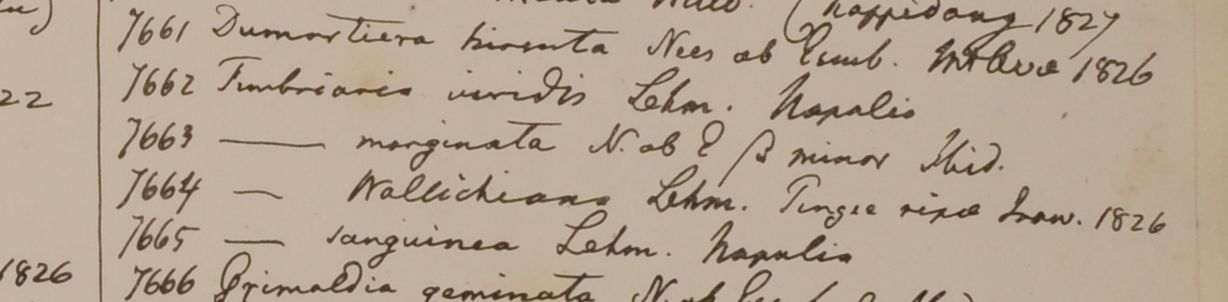 1827
7661 Dumortiera hirsuta Nees ab Esenb. Mt Ava 1826
7662 Fimbriaria viridis Lehm. Napalia
22
7663 —— marginata N. ab E β minor Ibid.
7664 — Wallichiana Lehm. ripæ Iraw. 1826
7665 — sanguinea Lehm. Napalia
1826
7666 Grimaldia geminata N. ab